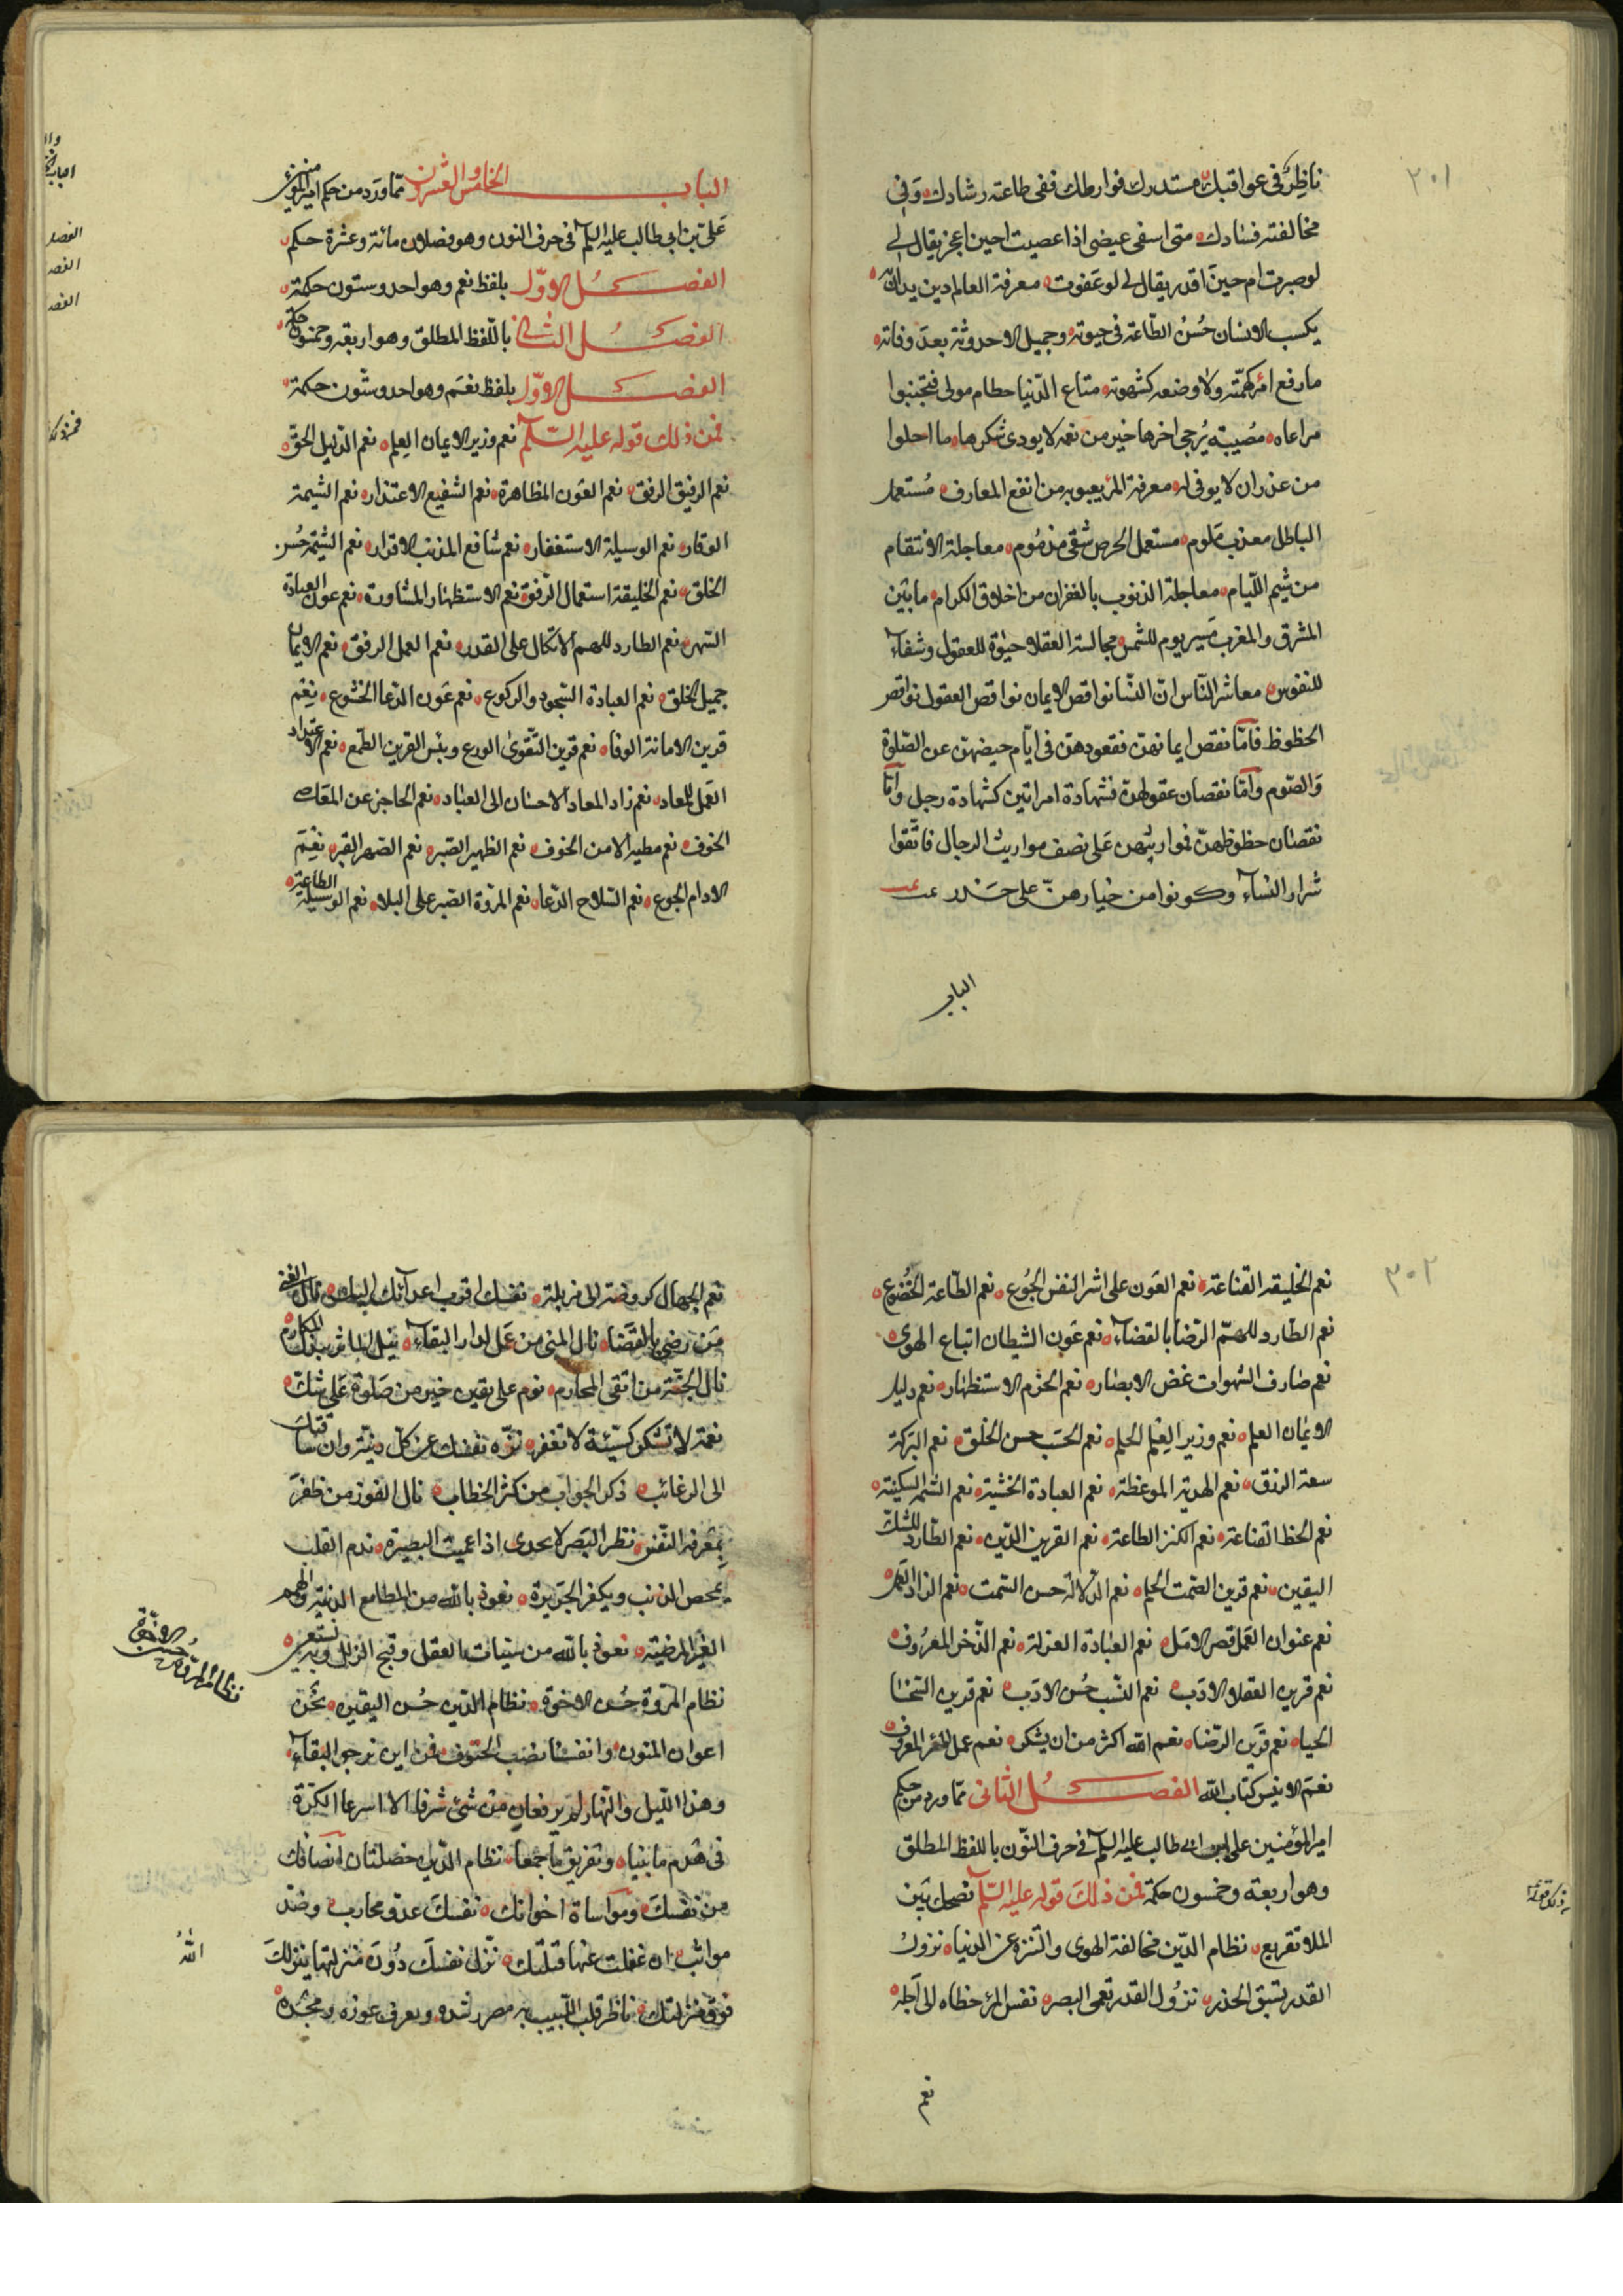 ٣٠١
ناظر في عواقبك مستدرك فوارطك ففي طاعته رشادك وفي
مخالفته فسادك متى اسفى غيضي اذا عصيت احين اعجز يقال لي
لو صبرت ام حين اقدر يقال لي لو عفوت معرفة العالم دين يدان به
يكسب الانسان حُسنُ الطّاعة في حيوته وجميل الاحدوثة بعد وفاته
ما رفع امرء كهمّته ولا وضعه كشهوته متاع الدّنيا حطام مولى فتجنبوا
مراعاه مُصيبة يُرجى اخرها خير من نعمة لا يودى شكرها ما احلوا
من غدر ان لا يوفى له معرفة المرء بعيوبه من انفع المعارف مُستعمل
الباطل معذب مَلوم مستعمل الحرص شقي مذمُوم معاجلة الانتقام
من شيم اللّيام معاجلة الذنوب بالغفران من اخلاق الكرام ما بَين
المشرق والمغرب مَسير يوم للشمس مجالسة العقلاء حيٰوة للعقول وشفاء
للنفوس معاشر النّاس انّ النسّا نواقص الايمان نواقص العقول نواقص
الحظوظ فامّا نقص ايمانهنّ فقعودهنّ في ايّام حيضهنّ عن الصّلوة
وَالصّوم وامّا نقصان عقولهنّ فشهادة امراتين كشهادة رجل وامّا
نقصان حظوظهنّ فمواريثهن عَلى نصف مواريث الرجال فاتّقوا
شرار النساء وكونوا من خيارهنّ على حَذر
الباب
الباب الخامس والعشرون ممّا ورَد من حكم امير المؤمنين
عَلي بن ابي طالب عليه السلم في حرف النون وهو فصلان مائة وعشرة حكم
الفصل الاوّل بلفظ نعم وهو احد وستون حكمة
الفصل الثاني باللّفظ المطلق وهو اربعة وخمسون حكمة
الفصل الاوّل بلفظ نعَم وهو احد وستّون حكمة
فمن ذلك قوله عليه السّلم نعم وزير الايمان العِلم نعم الدّليل الحقّ
نعم الرفيق الرفق نعم العَون المظاهرة نعم الشفيع الاعتذار نعم الشيمة
الوقار نعم الوسيلة الاستغفار نعم شافع المذنب الاقرار نعم الشيمَة حُسن
الخلق نعم الخليقة استعمال الرّفق نعم الاستظهار المشاورة نعم عون العبادة
السّهر نعم الطارد للهم الاتكال على القدر نعم العمل الرفق نعم الايمان
جميل الخلق نعم العبادة السّجود والركوع نعم عَون الدّعا الخشوع نِعم
قرين الامانة الوفاء نعم قرين التّقوى الورع وبئس القرين الطّمع نعم الاعتداد
العَمل للمعاد نعم زاد المعاد الاحسان الى العبٰاد نعم الحاجز عن المعَاصي
الخوف نعم مطيه الامن الخوف نعم الظهير الصّبر نعم الصّهر القبر نِعْمَ
الادام الجوع نعم السّلاح الدّعاء نعم المروّة الصّبر على البلاء نعم الوسيلة الطاعة
٣٠٢
نعم الخليقة القناعة نعم العَون على اشر النفس الجُوع نعم الطّاعة الخُضُوع
نعم الطّارد للهمّ الرّضا بالقضاء نعم عَون الشيطان اتباع الهوى
نعم صارف الشهوات غض الابصار نعم الحزم الاستظهار نعم دليل
الايمان العلم نعم وزير العِلم الحلم نعم الحَسَب حسن الخلق نعم البَركة
سعة الرزق نعم الهدية الموعظة نعم العبادة الخشية نعم الشّيمَة السّكينة
نعم الحظ القناعة نعم الكنز الطاعة نعم القرين الدّين نعم الطّارد للشّك
اليَقين نعم قرين الصّمت الحلم نعم الدّلالة حسن السّمت نعم الزاد العَمل
نعم عنوان العَمل قصر الامَل نعم العبٰادة العزلة نعم الذّخر المعرُوف
نعم قرين العقلاء الادَب نعم النّسب حُسن الادَب نعم قرين السّخا
الحياء نعم قرَين الرّضاء نعم الله اكثر من ان يشكر نعم عمل المرء المعروف
نعمَ الانيس كتاب الله الفصل الثّاني ممّا ورد من حِكم
امير المؤمنين علي ابن ابي طالب عليه السلم في حرف النّون باللفظ المطلق
وهو اربعة وخمسون حكمة فمن ذلكَ قوله عليه السّلم نصحك بَين
الملاء تقريع نظام الدّين مخالفة الهوى والتنزه عن الدنيا نزولُ
القدر يسَبق الحذر نزُول القدر تعمي البصر نفس المرء خطاه الى اَجله
نعم
نعم الجهال كروضة الى مزبلة نفسك اقرب اعدائك اليك نال الغنى
مَن رضي بالقضَا نال المنى من عَمل لدار البقاء نيل الماثر ببذل المكارم
نال الجنّة من اتقى المحارم نوم على يقين خير من صَلوة عَلى شك
نعمة لا تشكر كسيّئة لا تغفر نزّه نفسَك عن كلّ دنيّة وان ساقتك
الى الرغائب ذكر الجواب من كثر الخطاب نال الفوز من ظفرَ
بمَعرفة النّفس نظر البَصر لا يجدى اذا عميت البصيرة ندم القلب
يمحص الذنب ويكفر الجَرِيرة نعوذ بالله من المطامع الدنية والهمم
الغير المرضية نعوذ بالله من سيئات العقل وقبح الزلل وبه نستعين
نظام المرَوة حُسن الاخوة نظام الدّين حُسن اليَقين نحن
اعوان المنون وانفسنا نصب الحتوف فمن اين نرجوا البقاء
وهذا اللّيل والنّهار لم يرفعان من شئ شرفا الا اسرعا الكرّة
في هَدم ما بَنيا وتفريق ما جَمعا نظام الدّين خصلتان انصافك
من نفسكَ ومواساة اخوانك نفسكَ عدوّ محارب وضد
مواثب ان غفلت عنها قتلتك نزّل نفسَك دُونَ منزلتها ينزلكَ
فوق منزلتك ناظر قلب اللّبيب به مصر رشده ويعرف غوره ونجده
الله